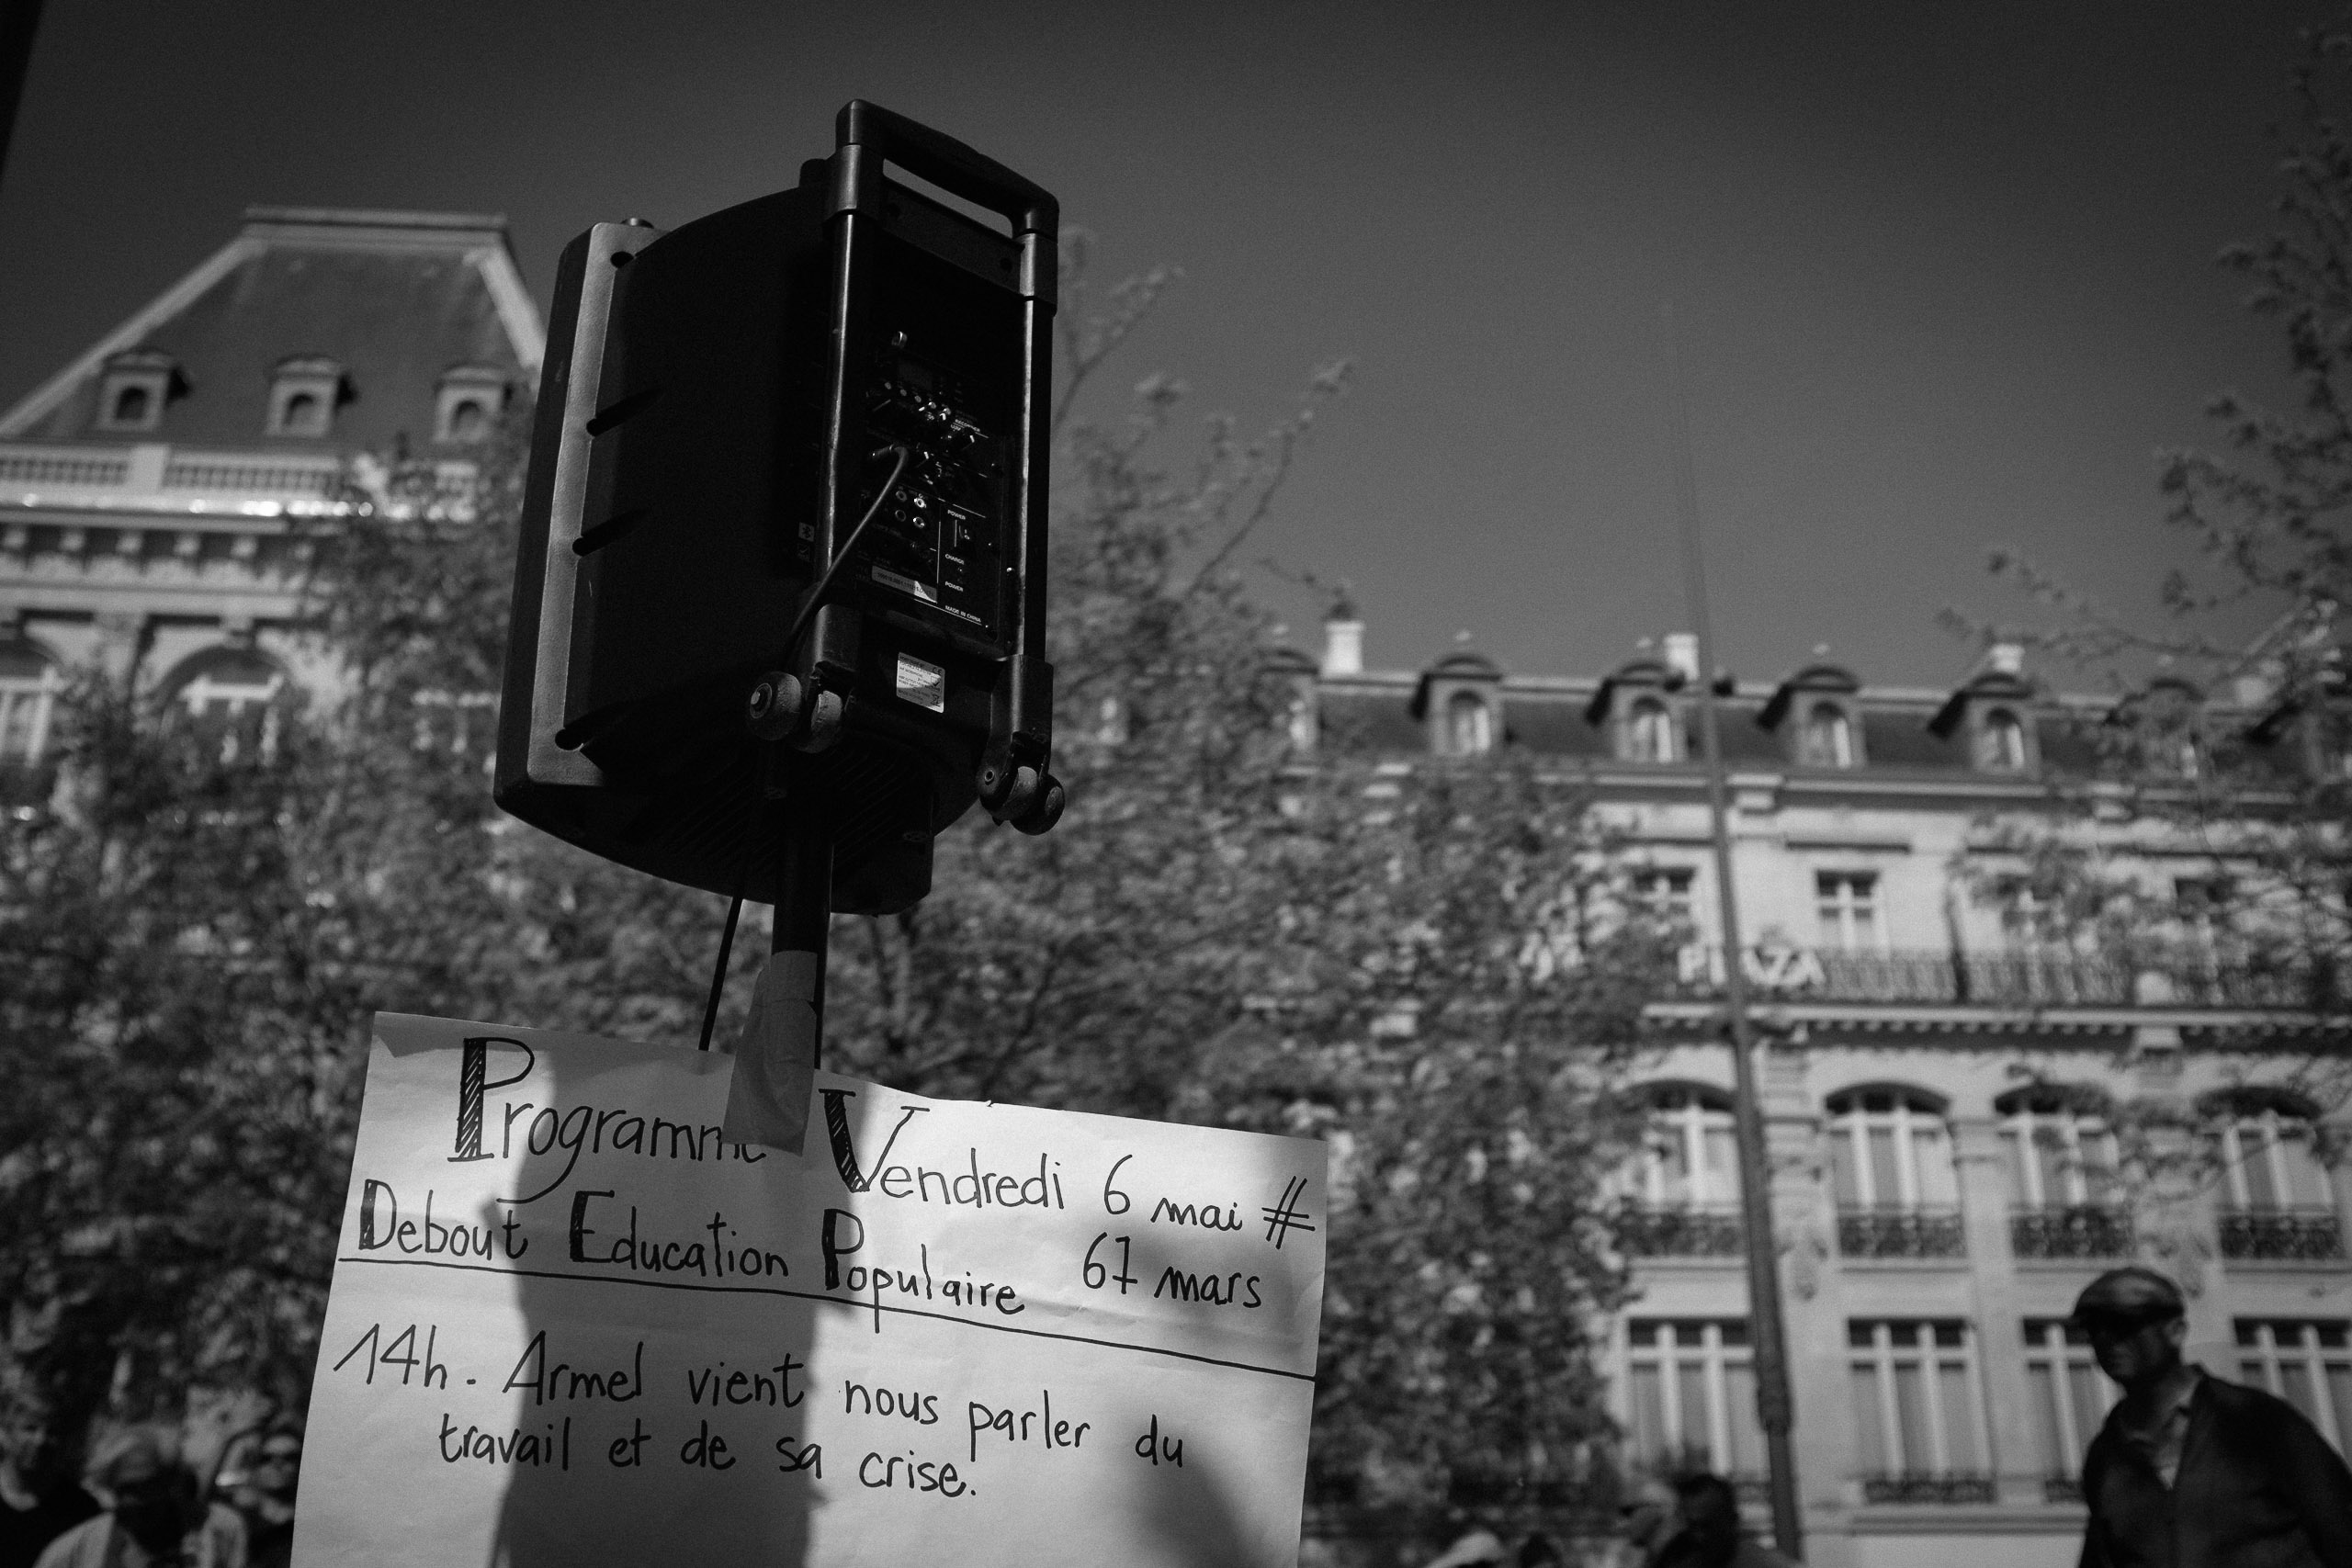 RECORDER
POWER
CHARGE
POWER
MADE IN CHINA
PLAZA
Programme Vendredi 6 mai #
Debout Education Populaire 67 mars
14h. Armel vient nous parler du
travail et de sa crise.